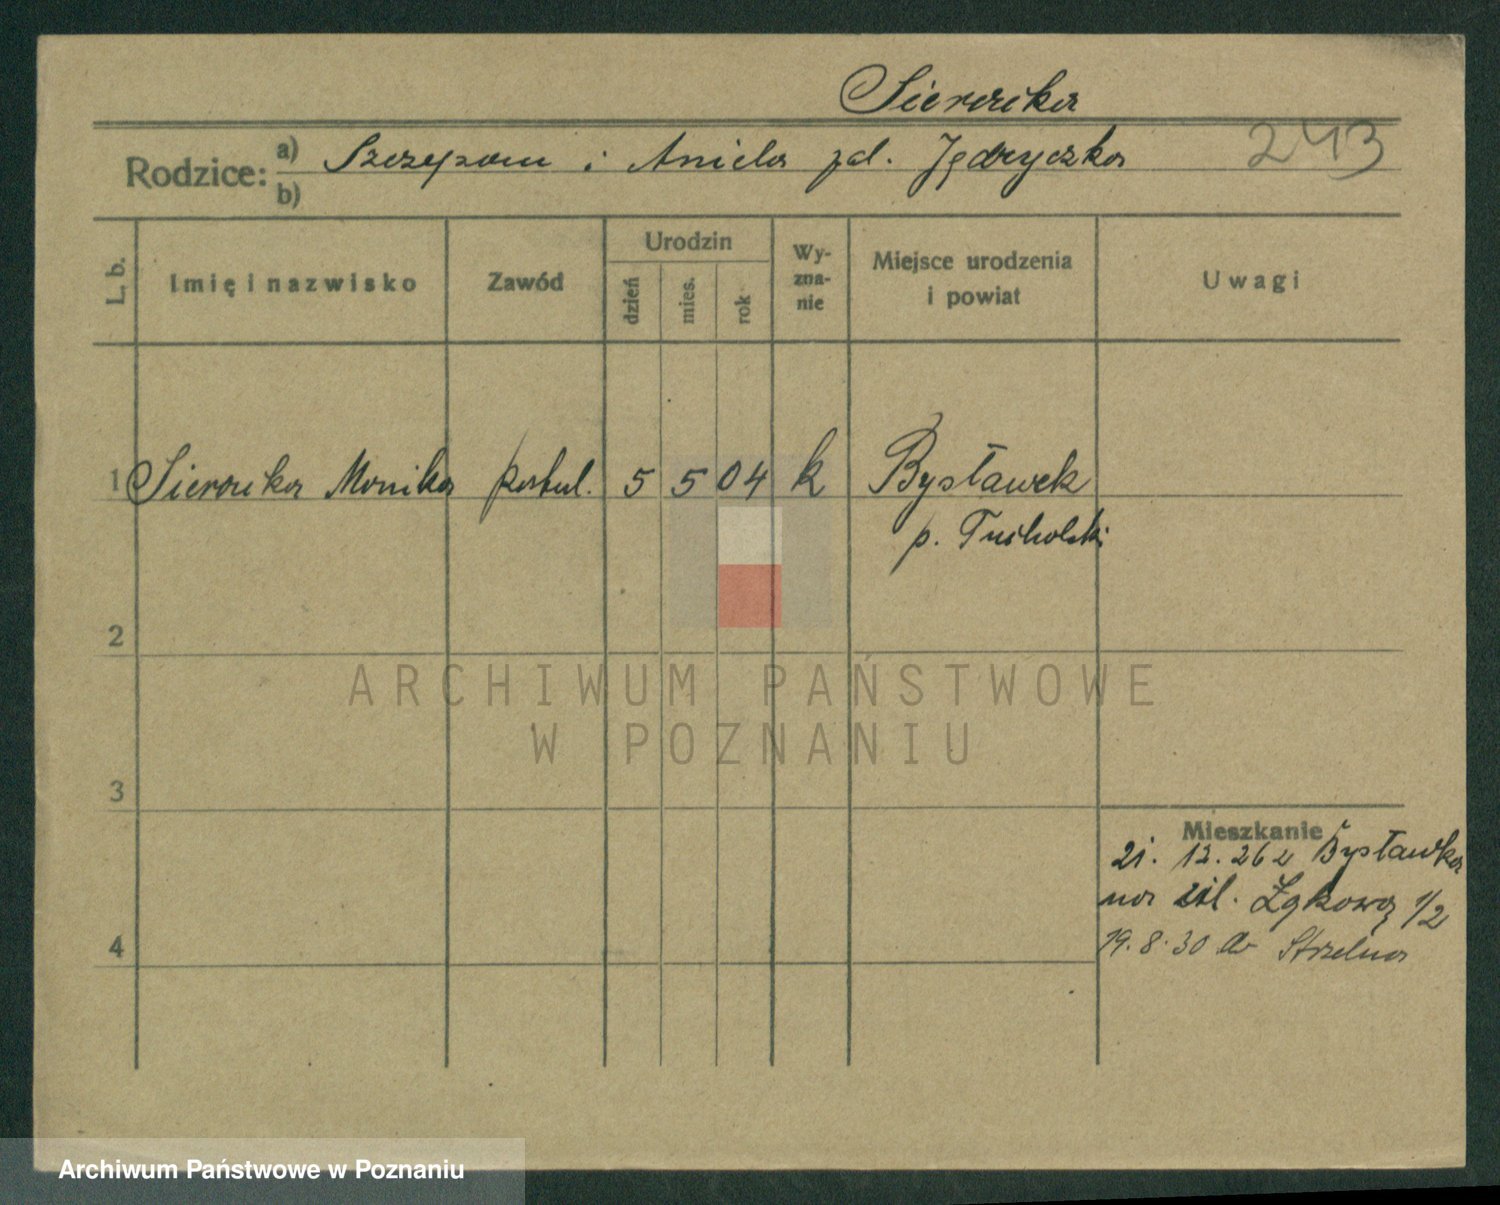 Sieracka
Rodzice: a) Szczepan i Aniela zd. Jędryczka 243
b)
L. b. Imię i nazwisko Zawód Urodzin Wy-zna-nie Miejsce urodzenia i powiat Uwagi
dzień mies. rok
1 Monika postul. 5 5 04 k Bysławek
p. Tucholski
2
ARCHIWUM PAŃSTWOWE
W POZNANIU
3
Mieszkanie
21. 12. 26 z Bysławka
na ul. Łąkową 1/2
19. 8. 30 do Strzelna
4
Archiwum Państwowe w Poznaniu